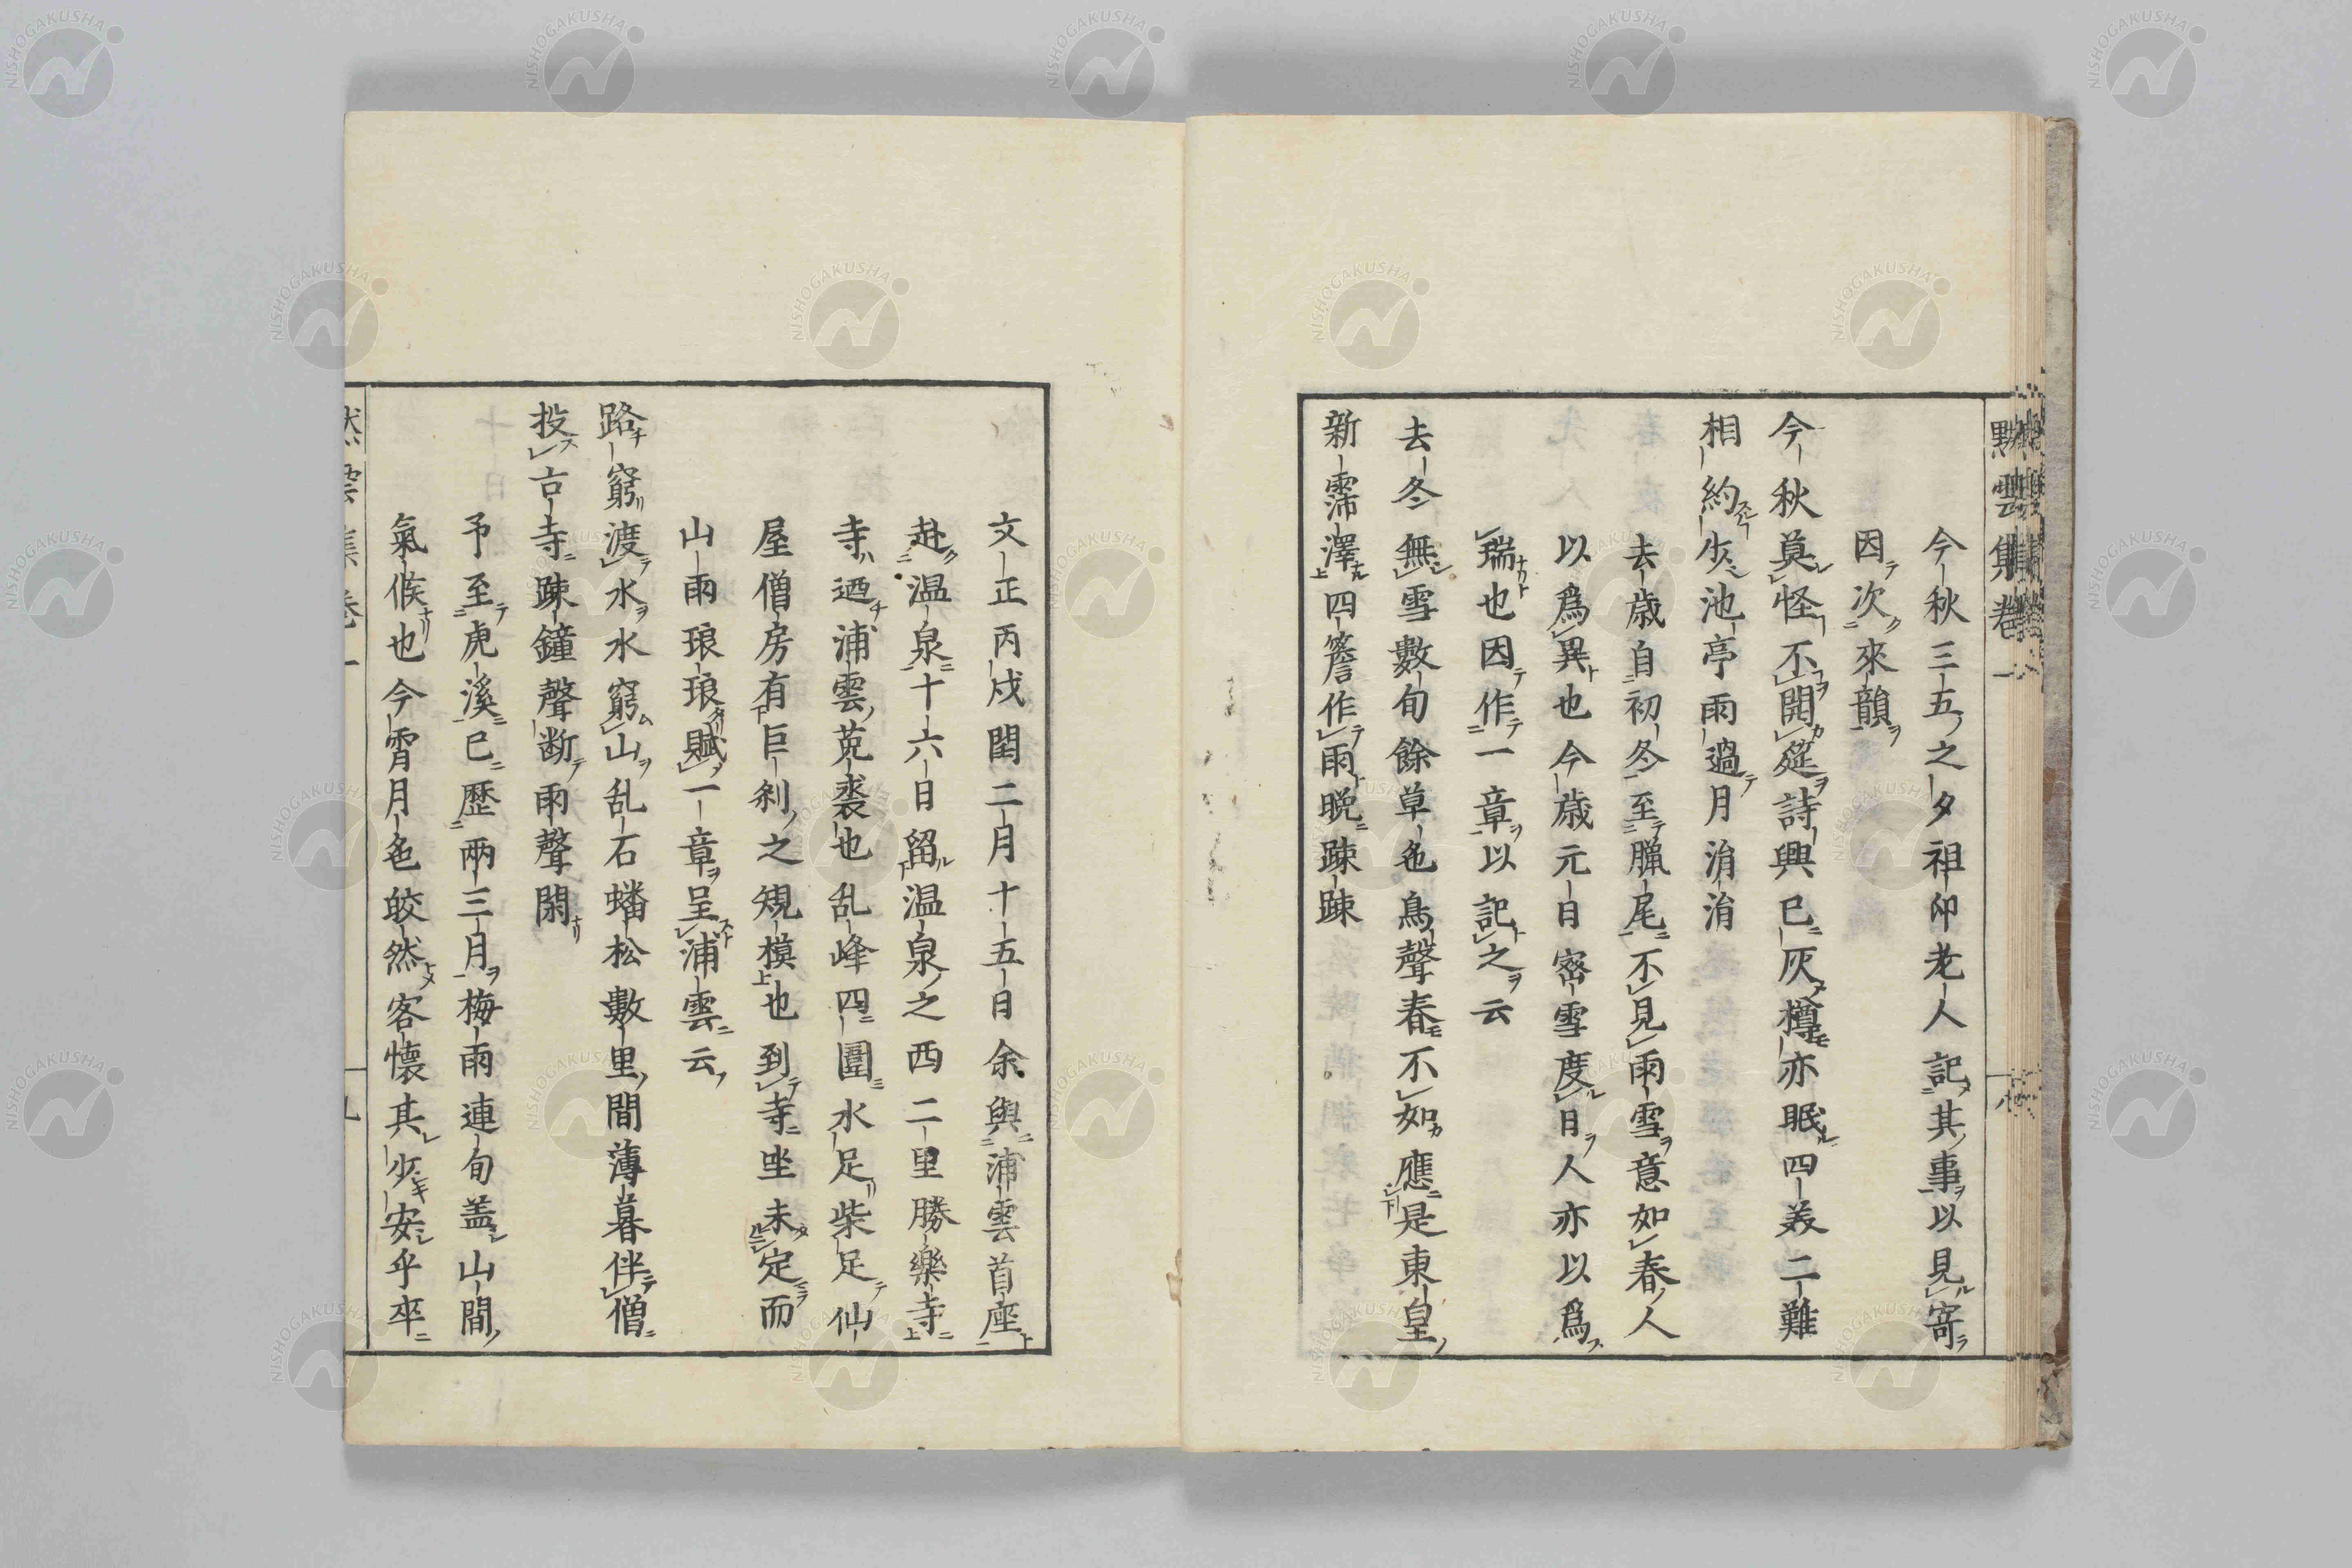 黙雲集卷一
今秋三五之夕祖仰老人記其事以見寄
因次來韻
今秋莫怪不開筵詩興已灰樽亦眠四美二難
相約少池亭雨過月涓涓
去歳自初冬至臘尾不見雨雪意如春人
以爲異也今歳元日密雪度日人亦以爲
瑞也因作一章以記之云
去冬無雪數旬餘草色鳥聲春不如應是東皇
新霈澤四簷作雨晩踈踈
文正丙戌閏二月十五日余與浦雲首座
赴温泉十六日留温泉之西二里勝樂寺
寺迺浦雲菟裘也乱峰四圍水足柴足仙
屋僧房有巨刹之規模也到寺坐未定而
山雨琅琅賦一章呈浦雲云
路窮渡水水窮山乱石蟠松數里間薄暮伴僧
投古寺踈鐘聲断雨聲閑
予至虎溪已歷兩三月梅雨連旬盖山間
氣候也今霄月色皎然客懷其少安乎卒
NISHOGAKUSHA